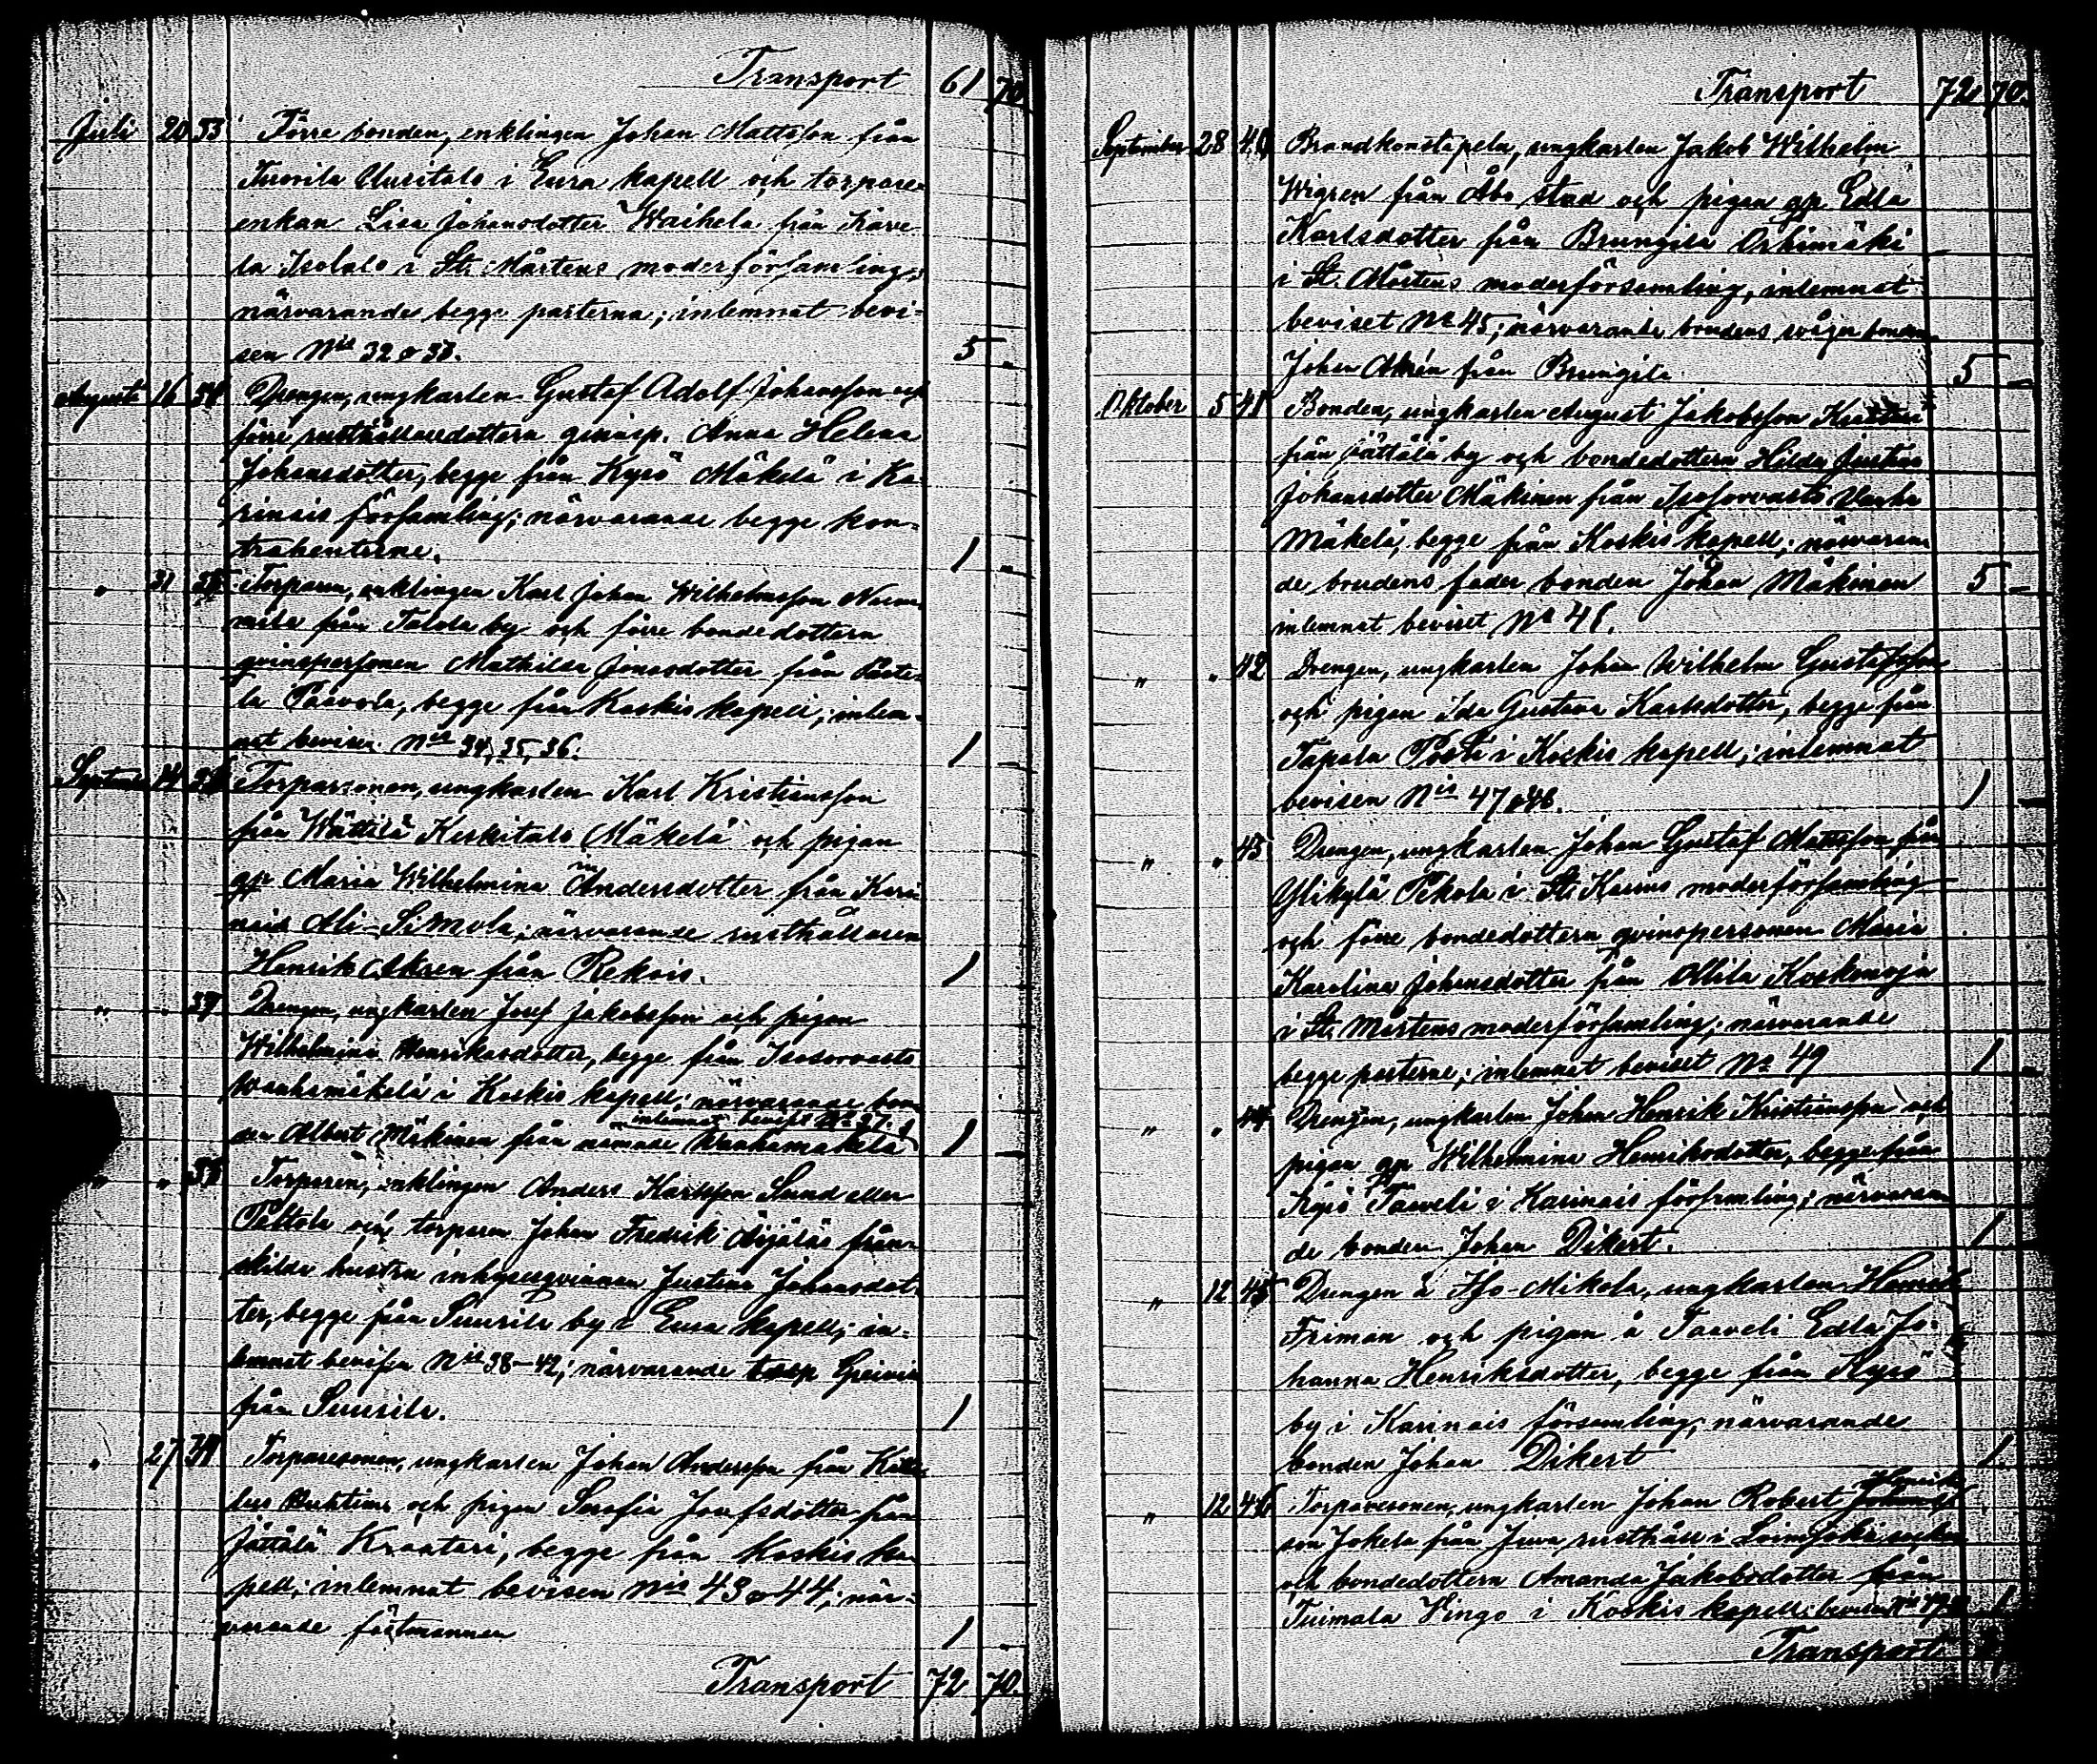 Transport 61 70
Juli 20 33 Förre bonden, enklingen Johan Mattsson från
Tuovila Uusitalo i Eura kapell och torpare-
enkan Lisa Johansdotter Waihela från Karve-
la Isotalo i St. Mårtens moderförsamling;
närvarande begge parterna; inlemnat bevi-
sen Nis 32 o 33. 5 -
Augusti 16 34 Drengen, ungkarlen Gustaf Adolf Johansson och
förre rusthållaredottern qvinsp. Anna Helena
Johansdotter, begge från Kyrö Mäkelä i Ka-
rinais församling; närvarande begge kon-
trahenterne. 1 -
" 31 35 Torparen, enklingen Karl Johan Wilhelmsson
från Talola by och förre bondedottern
qvinspersonen Mathilda Jonasdotter från
la Paavola, begge från Koskis kapell; inlem-
nat bevisen Nis 34, 35, 36. 1
September 14 36 Torparsonen, ungkarlen Karl Kristiansson
från Wättilä Keskitalo Mäkelä och pigan
qp Maria Wilhelmina Andersdotter från Kari-
nais Ali-Simola; närvarande rusthållaren
Henrik Akren från Rekois. 1
" 37 Drengen, ungkarlen Josef Jakobsson och pigan
Wilhelmina Henriksdotter, begge från Isosorvasto
Wanhamäkelä i Koskis kapell; närvarande bon-
inlemnat beviset No 37.
den Albert Mäkinen från nämnde Wanhamäkelä 1 -
" " 38 Torparen, enklingen Anders Karlsson Sund eller
Peltola och torparen Johan Fredrik Äijäläs från-
skilda hustru inhysesqvinnan Justina Johansdot-
ter, begge från Suurila by i Eura kapell; in-
lemnat bevisen Nis 38-42; närvarande torp
från Suurila. 1
" 27 39 Torparesonen, ungkarlen Johan Andersson från
och pigan Serafia Josefsdotter från
Jättälä Krantari, begge från Koskis ka-
pell; inlemnat bevisen Nis 43 o 44; när-
varande fästmannen 1 -
Transport 72 70
Transport 72 70
September 28 40 Brandkonstapeln, ungkarlen Jakob Wilhelm
Wigren från Åbo stad och pigan qp. Edla
Karlsdotter från Brungila Orhimäki
i St. Mårtens moderförsamling, inlemnat
beviset No 45; närvarande brudens svåger bonden
Johan från Brungila 5 -
Oktober 5 41 Bonden, ungkarlen August Jakobsson
från Jättälä by och bondedottern Hilda Justina
Johansdotter Mäkinen från Isosorvasto Vanha
Mäkelä, begge från Koskis kapell; närvaran-
de brudens fader bonden Johan Mäkinen 5 -
inlemnat beviset No 46.
" " 42 Drengen, ungkarlen Johan Wilhelm Gustafsson
och pigan Ida Gustava Karlsdotter, begge från
Tapala Posti i Koskis kapell; inlemnat
bevisen Nis 47 o 48. 1 -
" " 43 Drengen, ungkarlen Johan Gustaf Mattsson från
Ylikylä Pekola i St. Karins moderförsamling
och förre bondedottern qvinspersonen Maria
Karolina Johansdotter från Ollila Koskenoja
i St. Mårtens moderförsamling; närvarande
begge parterne; inlemnat beviset No 49 1 -
" " 44 Drengen, ungkarlen Johan Henrik Kristiansson och
pigan qp Wilhelmina Henriksdotter, begge från
Kyrö Taaveli i Karinais församling; närvaran-
de bonden Johan Dikert. 1
" 12 45 Drengen å Iso-Mikola, ungkarlen Henrik
Friman och pigan å Taaveli Edla Jo-
hanna Henriksdotter, begge från Kyrö
by i Karinais församling; närvarande
bonden Johan Dikert 1
Henriks-
" 12 46 Torparesonen, ungkarlen Johan Robert
son Jokela från Juva rusthåll i Loimjoki socken
och bondedottern Amanda Jakobsdotter från
Tuimala Hingo i Koskis kapell; 1
Transport